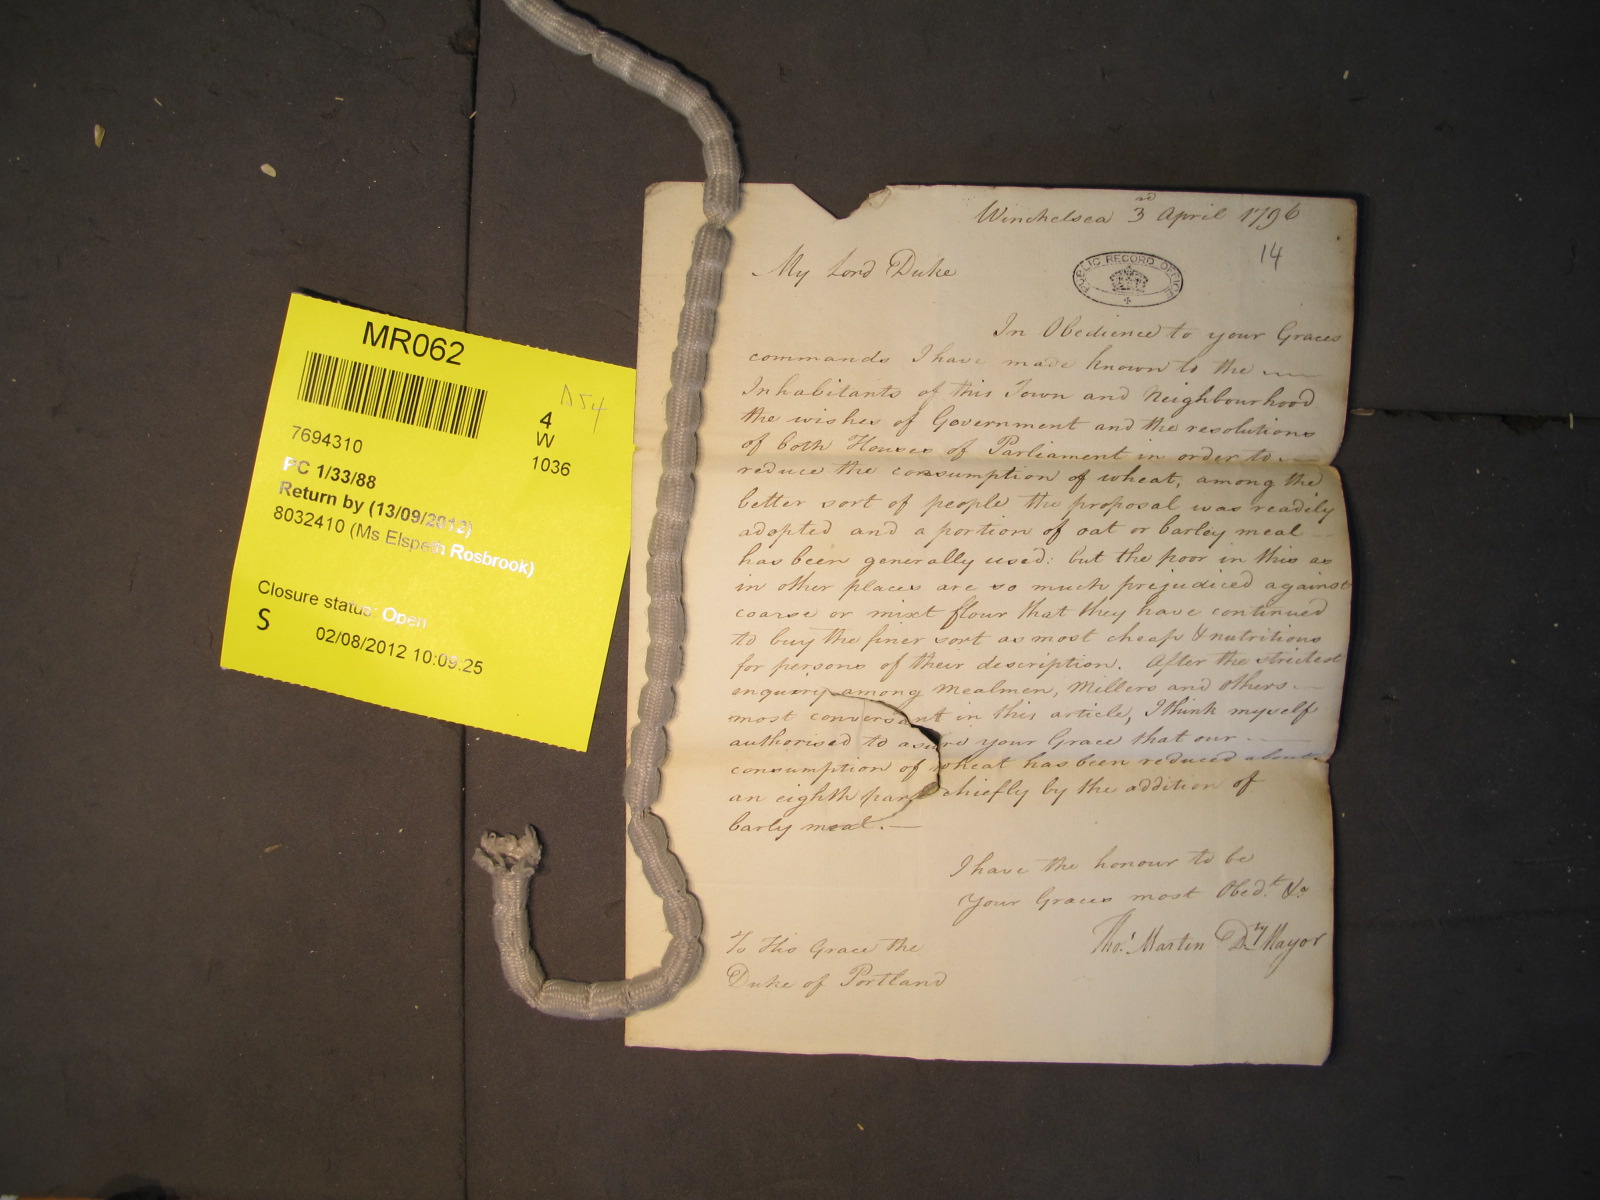 MR062
D54
4
W
7694310
1036
PC 1/33/88
Return by (13/09/2012)
8032410 (Ms Elspeth Rosbrook)
Closure status: Open
S
02/08/2012 10:09:25
Winchelsea 3rd April 1796
14
PUBLIC RECORD OFFICE
My Lord Duke
In Obedience to your Graces
commands I have made known to the
Inhabitants of this Town and Neighbourhood
the wishes of Government and the resolutions
of both Houses of Parliament in order to
reduce the consumption of wheat, among the
better sort of people the proposal was readily
adopted and a portion of oat or barley meal
has been generally used: but the poor in this as
in other places are so much prejudiced against
coarse or mixt flour that they have continued
to buy the finer sort as most cheap & nutritious
for persons of their description. After the strictest
enquiry among Mealmen, Millers and others
most conversant in this article, I think myself
authorised to assure your Grace that our
consumption of wheat has been reduced about
an eighth part chiefly by the addition of
barly meal.
I have the honour to be
Your Graces most Obedt. &c
Thos. Martin Dty Mayor
To His Grace the
Duke of Portland